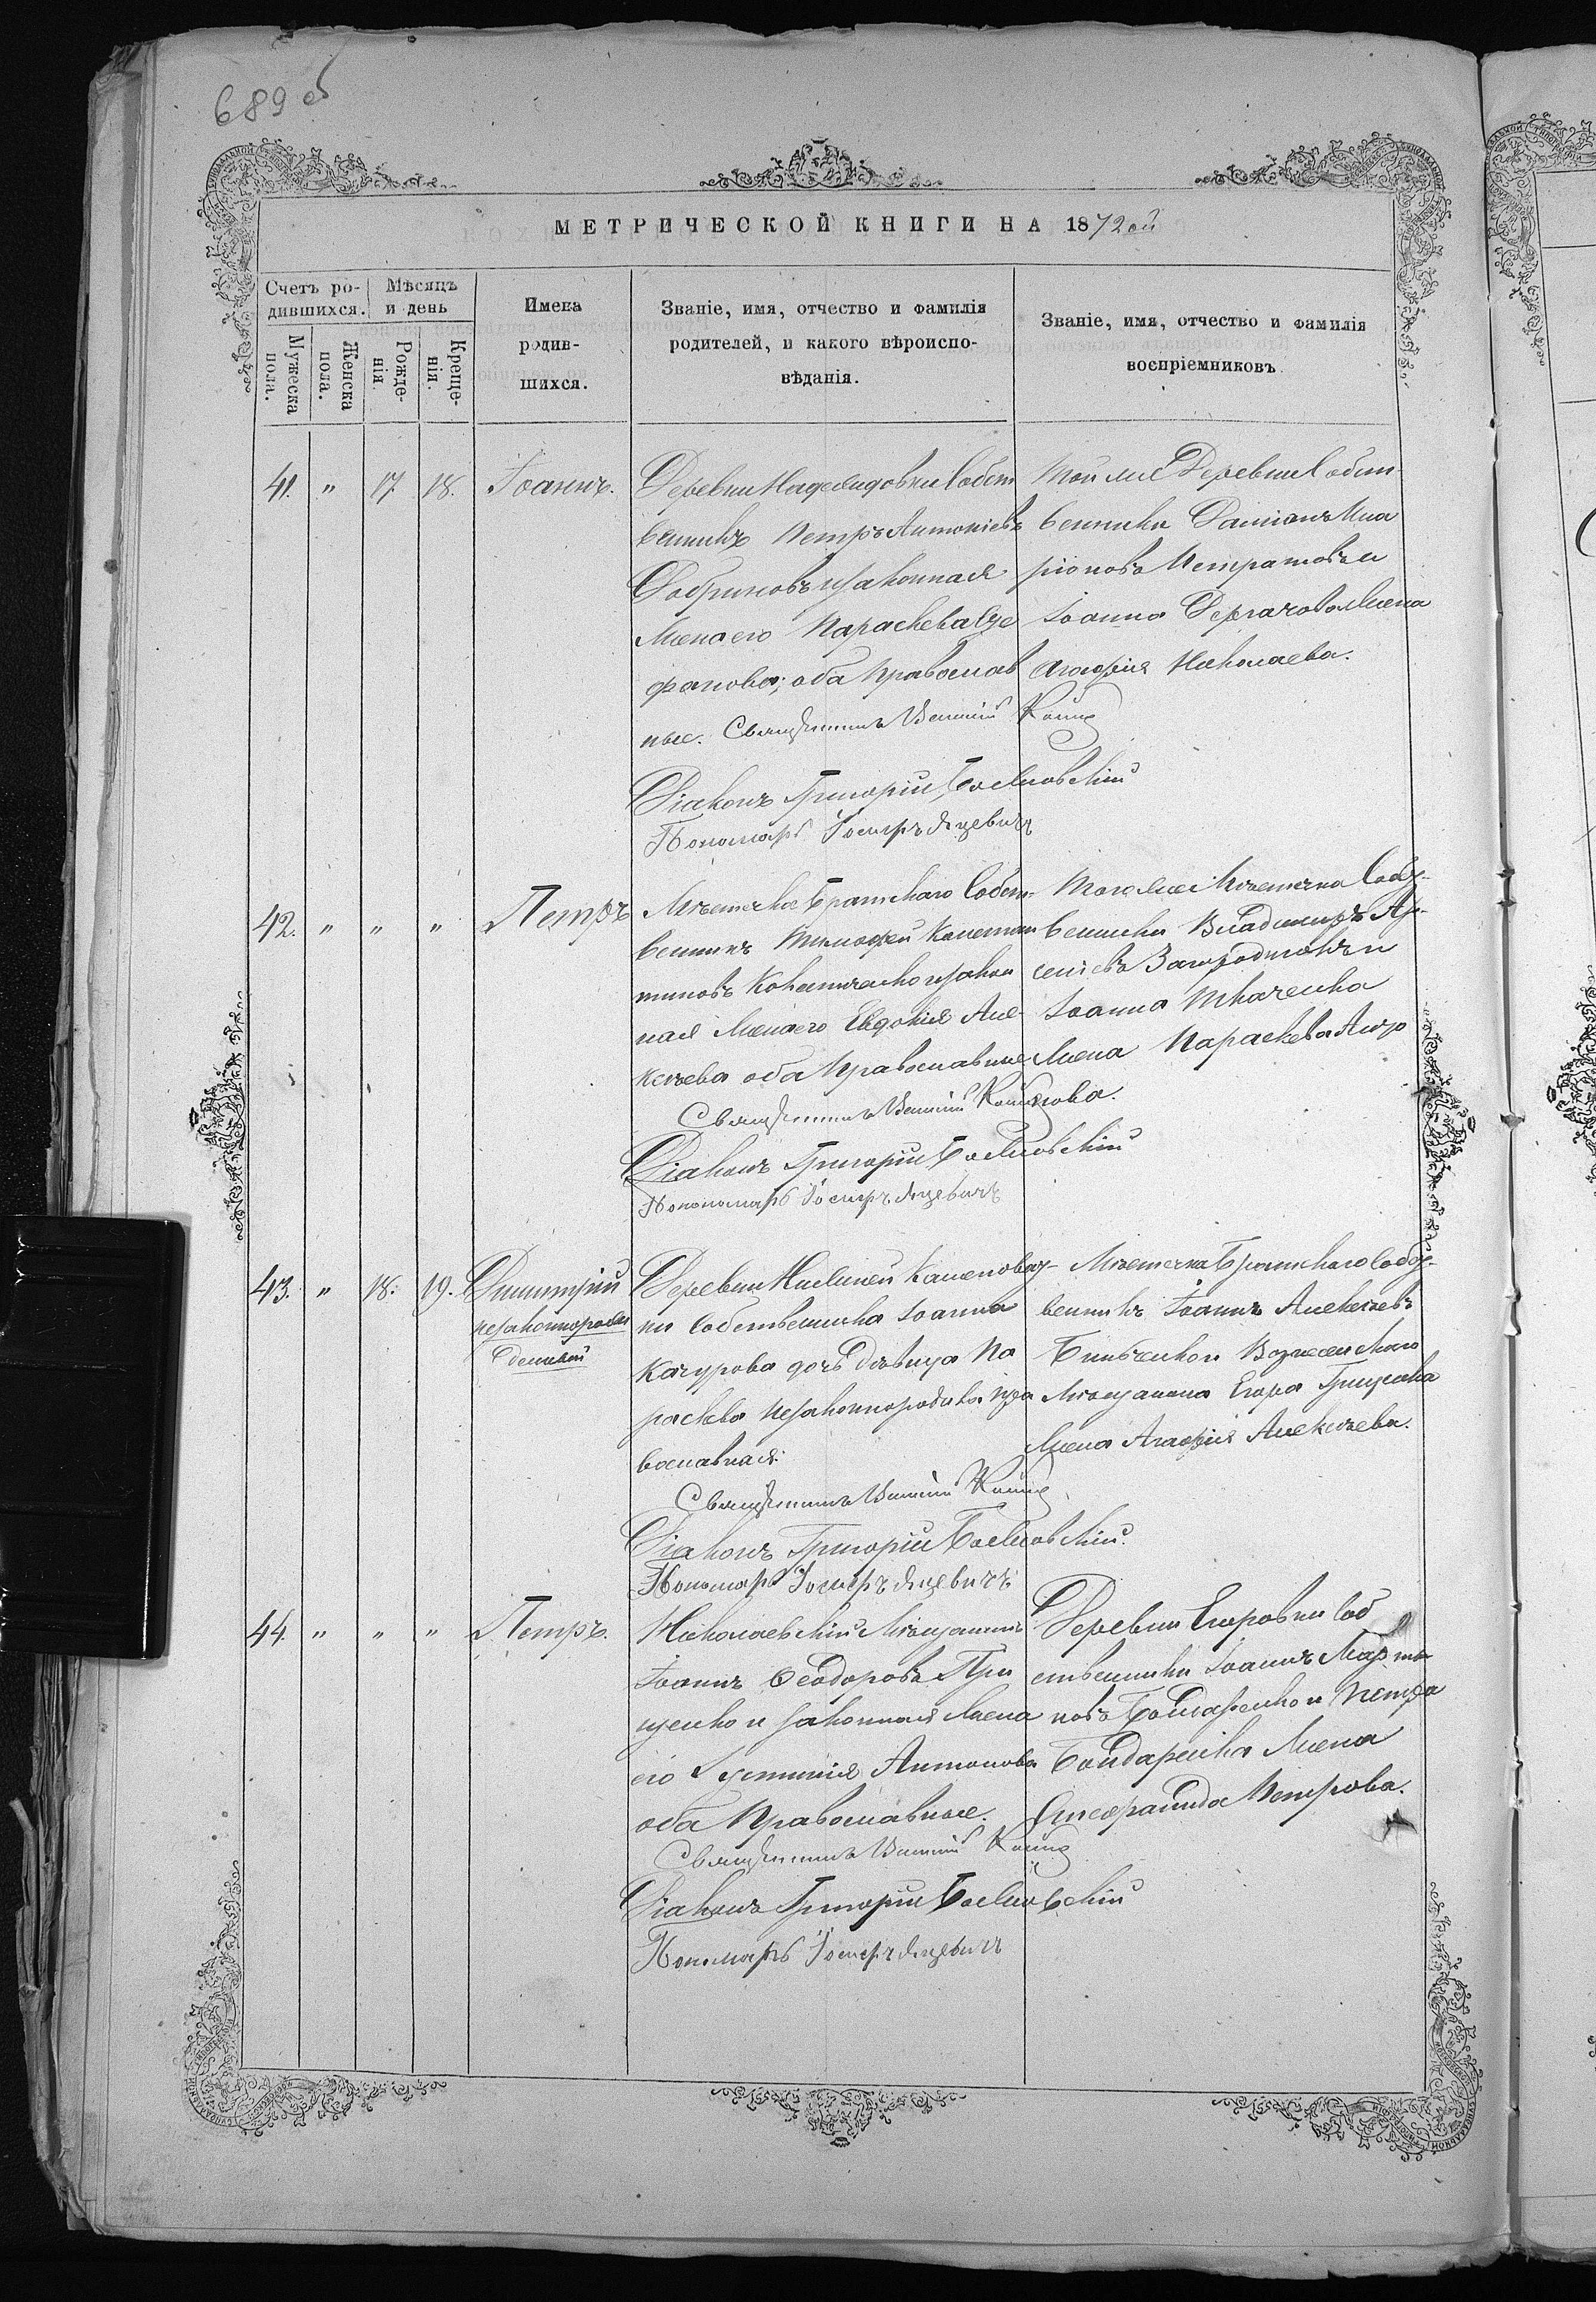 689 об
МЕТРИЧЕСКОЙ КНИГИ НА 1872ой
Счетъ ро-
дившихся.
Мѣсяцъ
и день
Мужеска
пола.
Женска
пола.
Рожде-
нія.
Креще-
нія.
Имена
родив-
шихся.
Званіе, имя, отчество и фамилія
родителей, и какого вѣроиспо-
вѣданія.
Званіе, имя, отчество и фамилія
воспріемниковъ
41. " 17. 18. Іоаннъ.
Деревни Надеждовки Собст
венникъ Петръ Антоніевъ
Добриновъ и законная
Жена его Параскева Сте
фанова; оба Православ
ные. Священникъ
Діаконъ Григорій
Пономарь
Той же Деревни Собст-
венники Даміанъ Ила
ріоновъ и
Іоанна Дергачова Жена
Агафія Николаева.
42. " " " Петръ
Мѣстечка Братскаго Собст-
венникъ Тимофей Констан
тиновъ и закон
ная Жена его Евдокія Але-
ксѣева оба Православные
Священникъ
Діаконъ Григорій
Пономарь
Того же Мѣстечка Собст-
венники Владимиръ Ар-
сеніевъ и
Іоанна Ткаченка
Жена Параскева
43. " 18. 19. Димитрій
незаконнорож
денный
Деревни Нижней Каменоват-
ки Собственника Іоанна
Качурова дочь дѣвица Па
раскева незаконнородила пра
вославная.
Священникъ
Діаконъ Григорій
Пономарь
Мѣстечка Братскаго Собст-
венникъ Іоаннъ Алексѣевъ
и Вознесенскаго
Мѣщанина Егора
Жена Агафія Алексѣева.
44. " " " Петръ.
Николаевскій Мѣщанинъ
Іоаннъ Ѳеодоровъ Гри
щенко и законная Жена
его Іустинія Антонова
оба Православные.
Священникъ
Діаконъ Григорій
Пономарь
Деревни Егоровки Соб
ственники Іоаннъ Марты
новъ Бондаренко и Петра
Бондаренка Жена
Петрова.